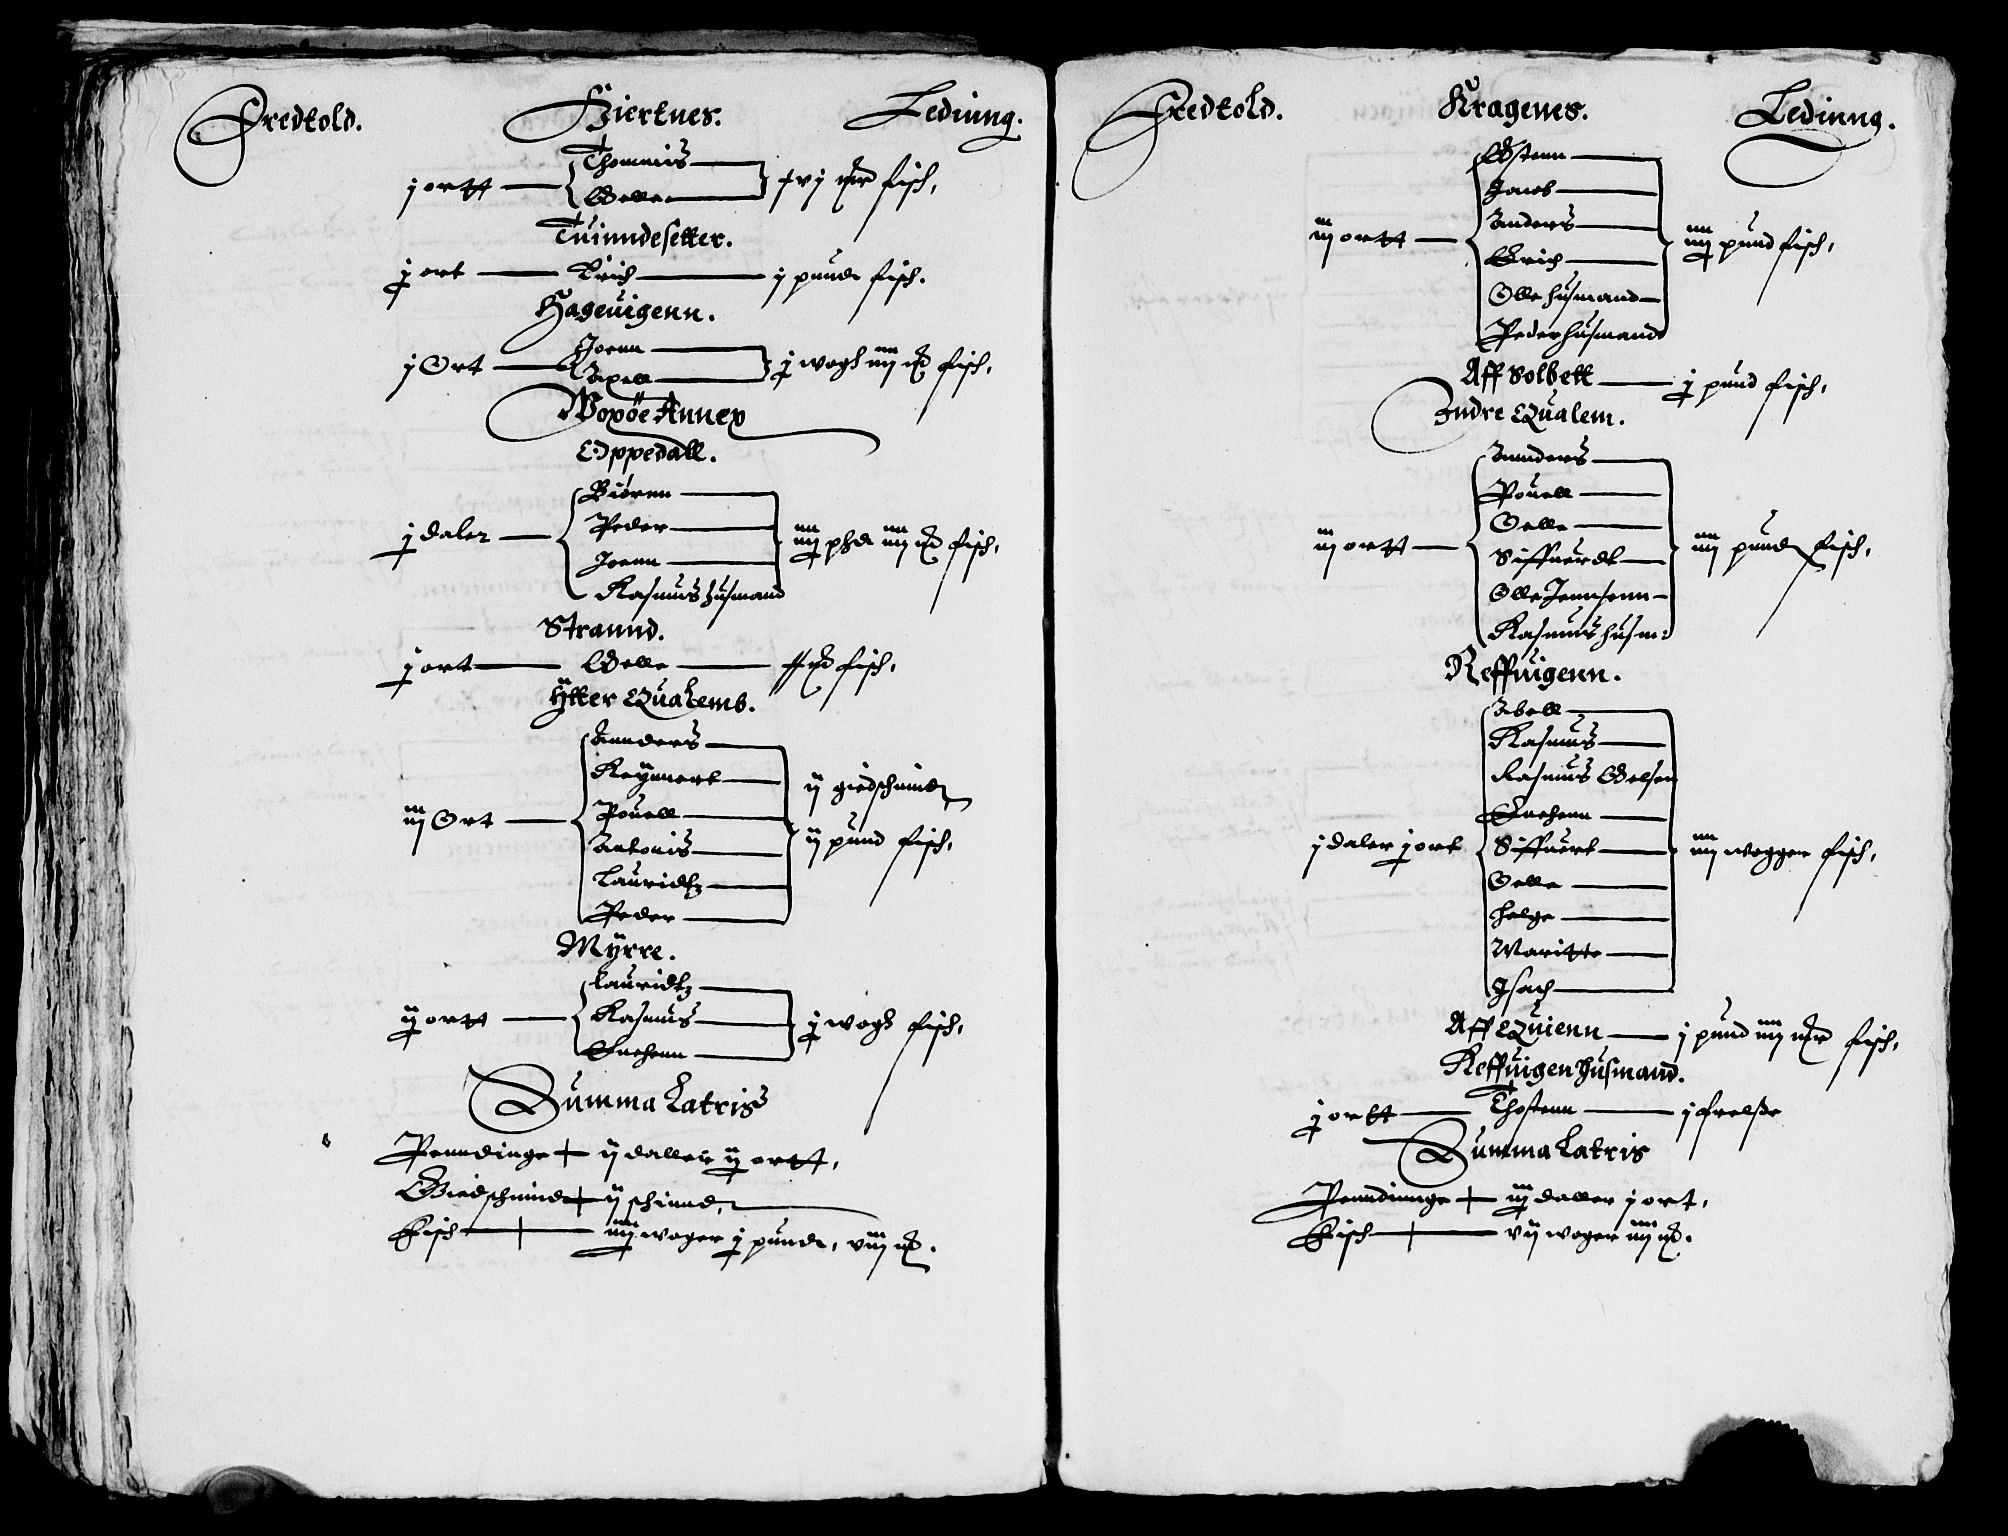 Fredtold. Hiertnes. Ledinng.
j ortt { Thommis
Oelle } xvj mrk fisch,
Tuinndesetter.
j ort Erich j pund fisch.
Hageuigenn.
j Ort { Joenn
Axell } j wogh iiij mk fisch,
Woxöe Annex
Oppedall.
j daler { Biörnn
Peder
Joenn
Rasmus husmand } iiij phd iiij mk fisch,
Strannd.
j ort Oelle mk fisch,
Ytter Qualemb.
iij Ort { Annders
Reynnert
Pouell
Antonis
Lauridtz
Peder } ij giedschinnd
ij pund fisch,
Myrre.
ij ortt { Lauridtz
Rasmus
Enchenn } j wogh fisch,
Summa Latris
Penndinge ij daller ij ortt,
Giedschinnd ij schinnd,
Fisch iiij woger j pund, viij mk.
Fredtold. Kragenes. Ledinng.
iij ortt { Østenn
Jacob
Anders
Erich
Olle husmand
Peder husmand } iiij pund fisch,
Aff Solbett j pund fisch,
Indre Qualem.
iij ortt { Annders
Pouell
Oelle
Siffuerdt
Olle Jennsenn
Rasmus husm: } iiij pund fisch,
Reffuigenn.
j daler j ort { Abell
Rasmus
Rasmus Oelsen
Enchenn
Siffuert
Oelle
Helge
Maritte
Isach } iiij wogger fisch,
Aff Quienn j pund iiij mrk fisch,
Reffuigen husmand.
j ortt Thostenn j frelsse
Summa Latris
Penndinnge iij daller j ort,
Fisch vij woger iiij mk.